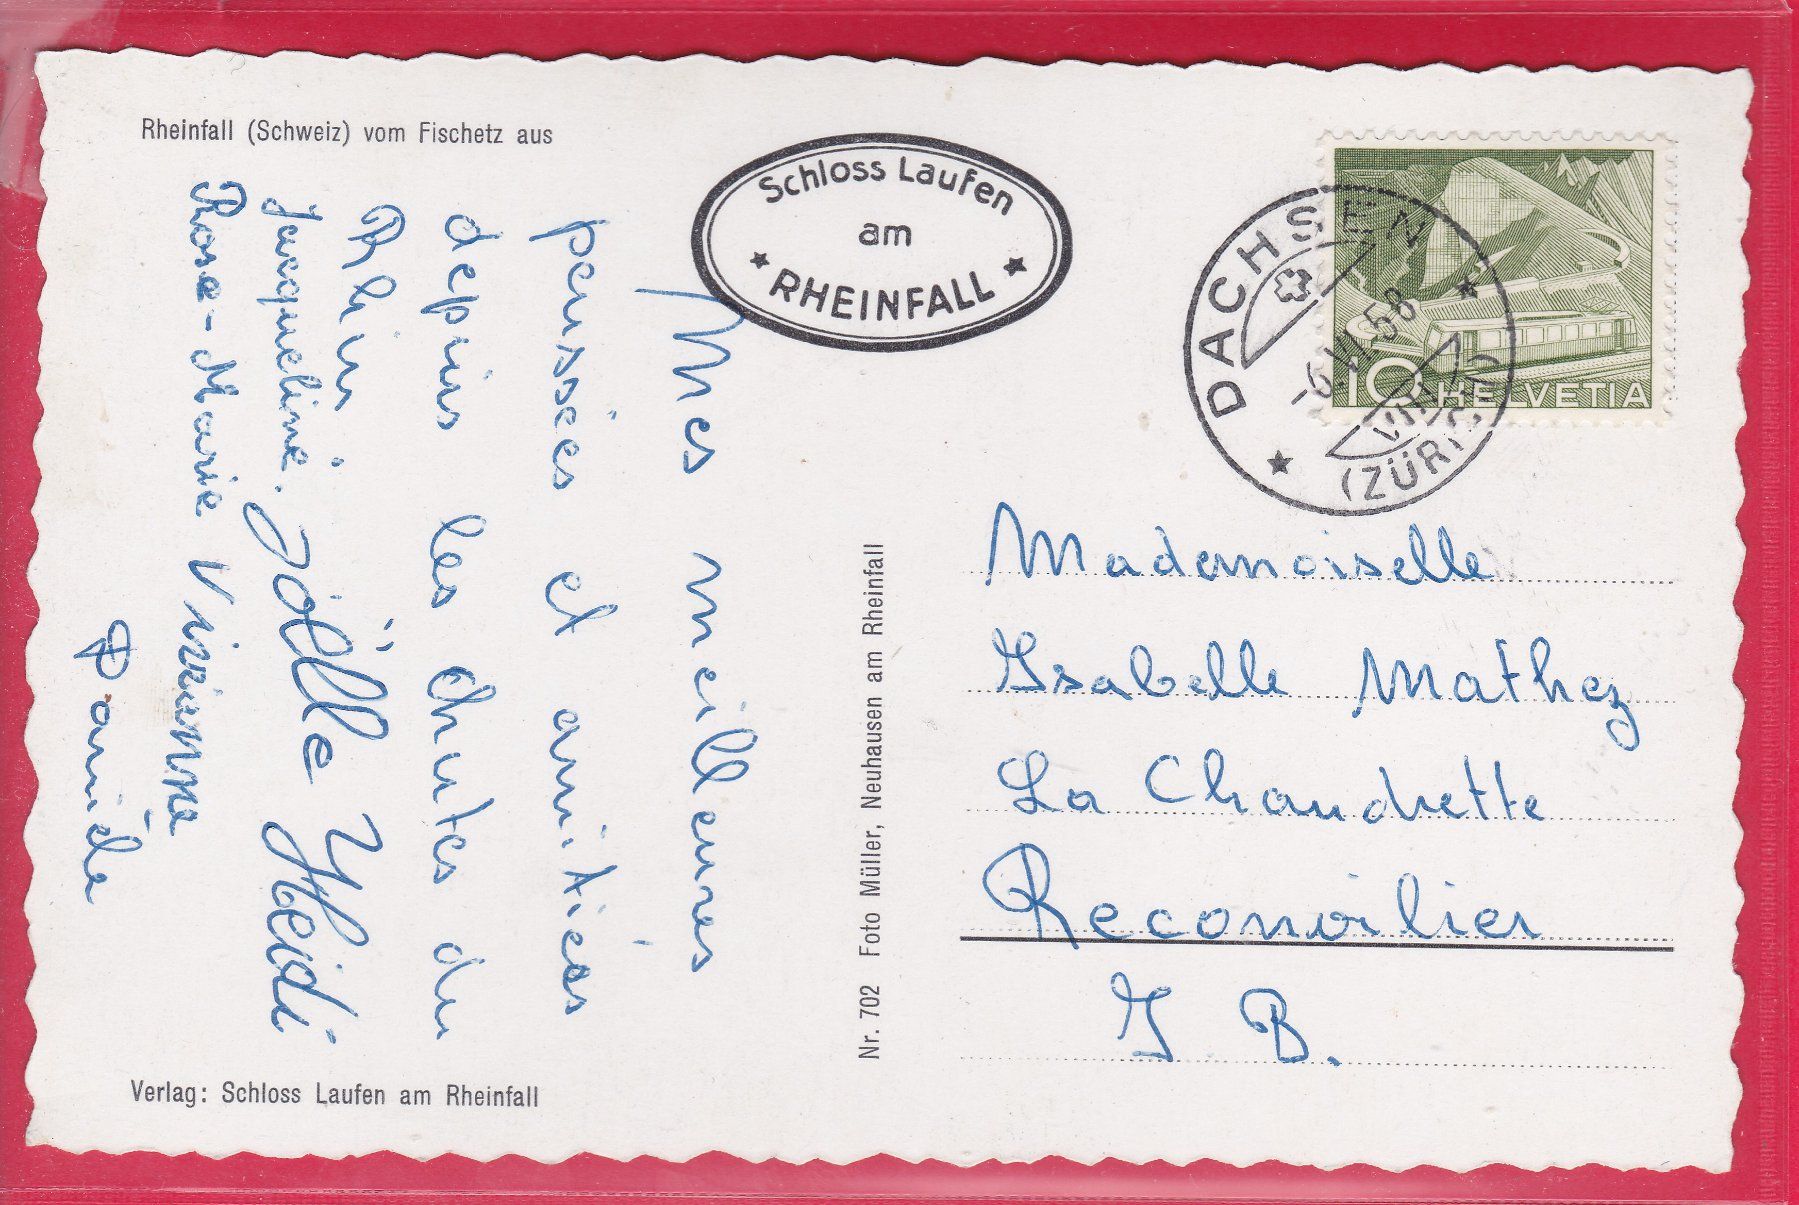 Rheinfall (Schweiz) vom Fischetz aus
Schloss Laufen
am
★ RHEINFALL ★
DACHSEN
-6.VI.58
(ZÜRICH)
10 HELVETIA
Mes meilleures
pensées et amitiés
depuis les chutes du
Rhin.
Jacqueline. Joëlle Heidi
Rose-Marie Vivianne
Danièle
Nr. 702 Foto Müller, Neuhausen am Rheinfall
Mademoiselle
Isabelle Mathez
La Chaudrette
Reconvilier
J B.
Verlag: Schloss Laufen am Rheinfall